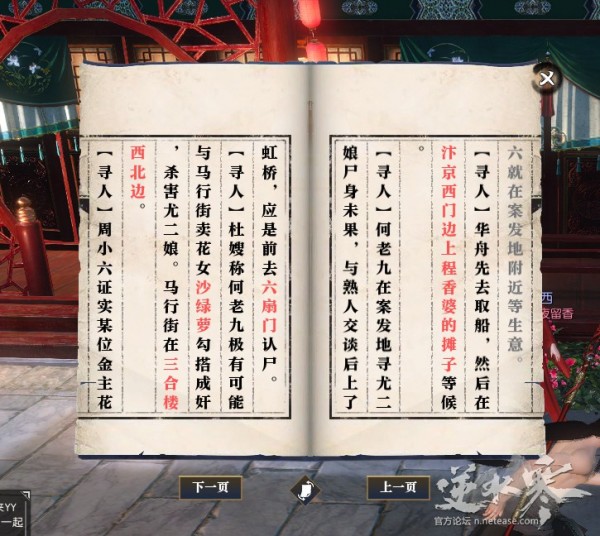 六就在案发地附近等生意。
【寻人】华舟先去取船，然后在
汴京西门边上程香婆的摊子等候
。
【寻人】何老九在案发地寻尤二
娘尸身未果，与熟人交谈后上了
虹桥，应是前去六扇门认尸。
【寻人】杜嫂称何老九极有可能
与马行街卖花女沙绿萝勾搭成奸
，杀害尤二娘。马行街在三合楼
西北边。
【寻人】周小六证实某位金主花
西
夜留香
下一页
上一页
YY
一起
逆水寒
官方论坛 n.netease.com